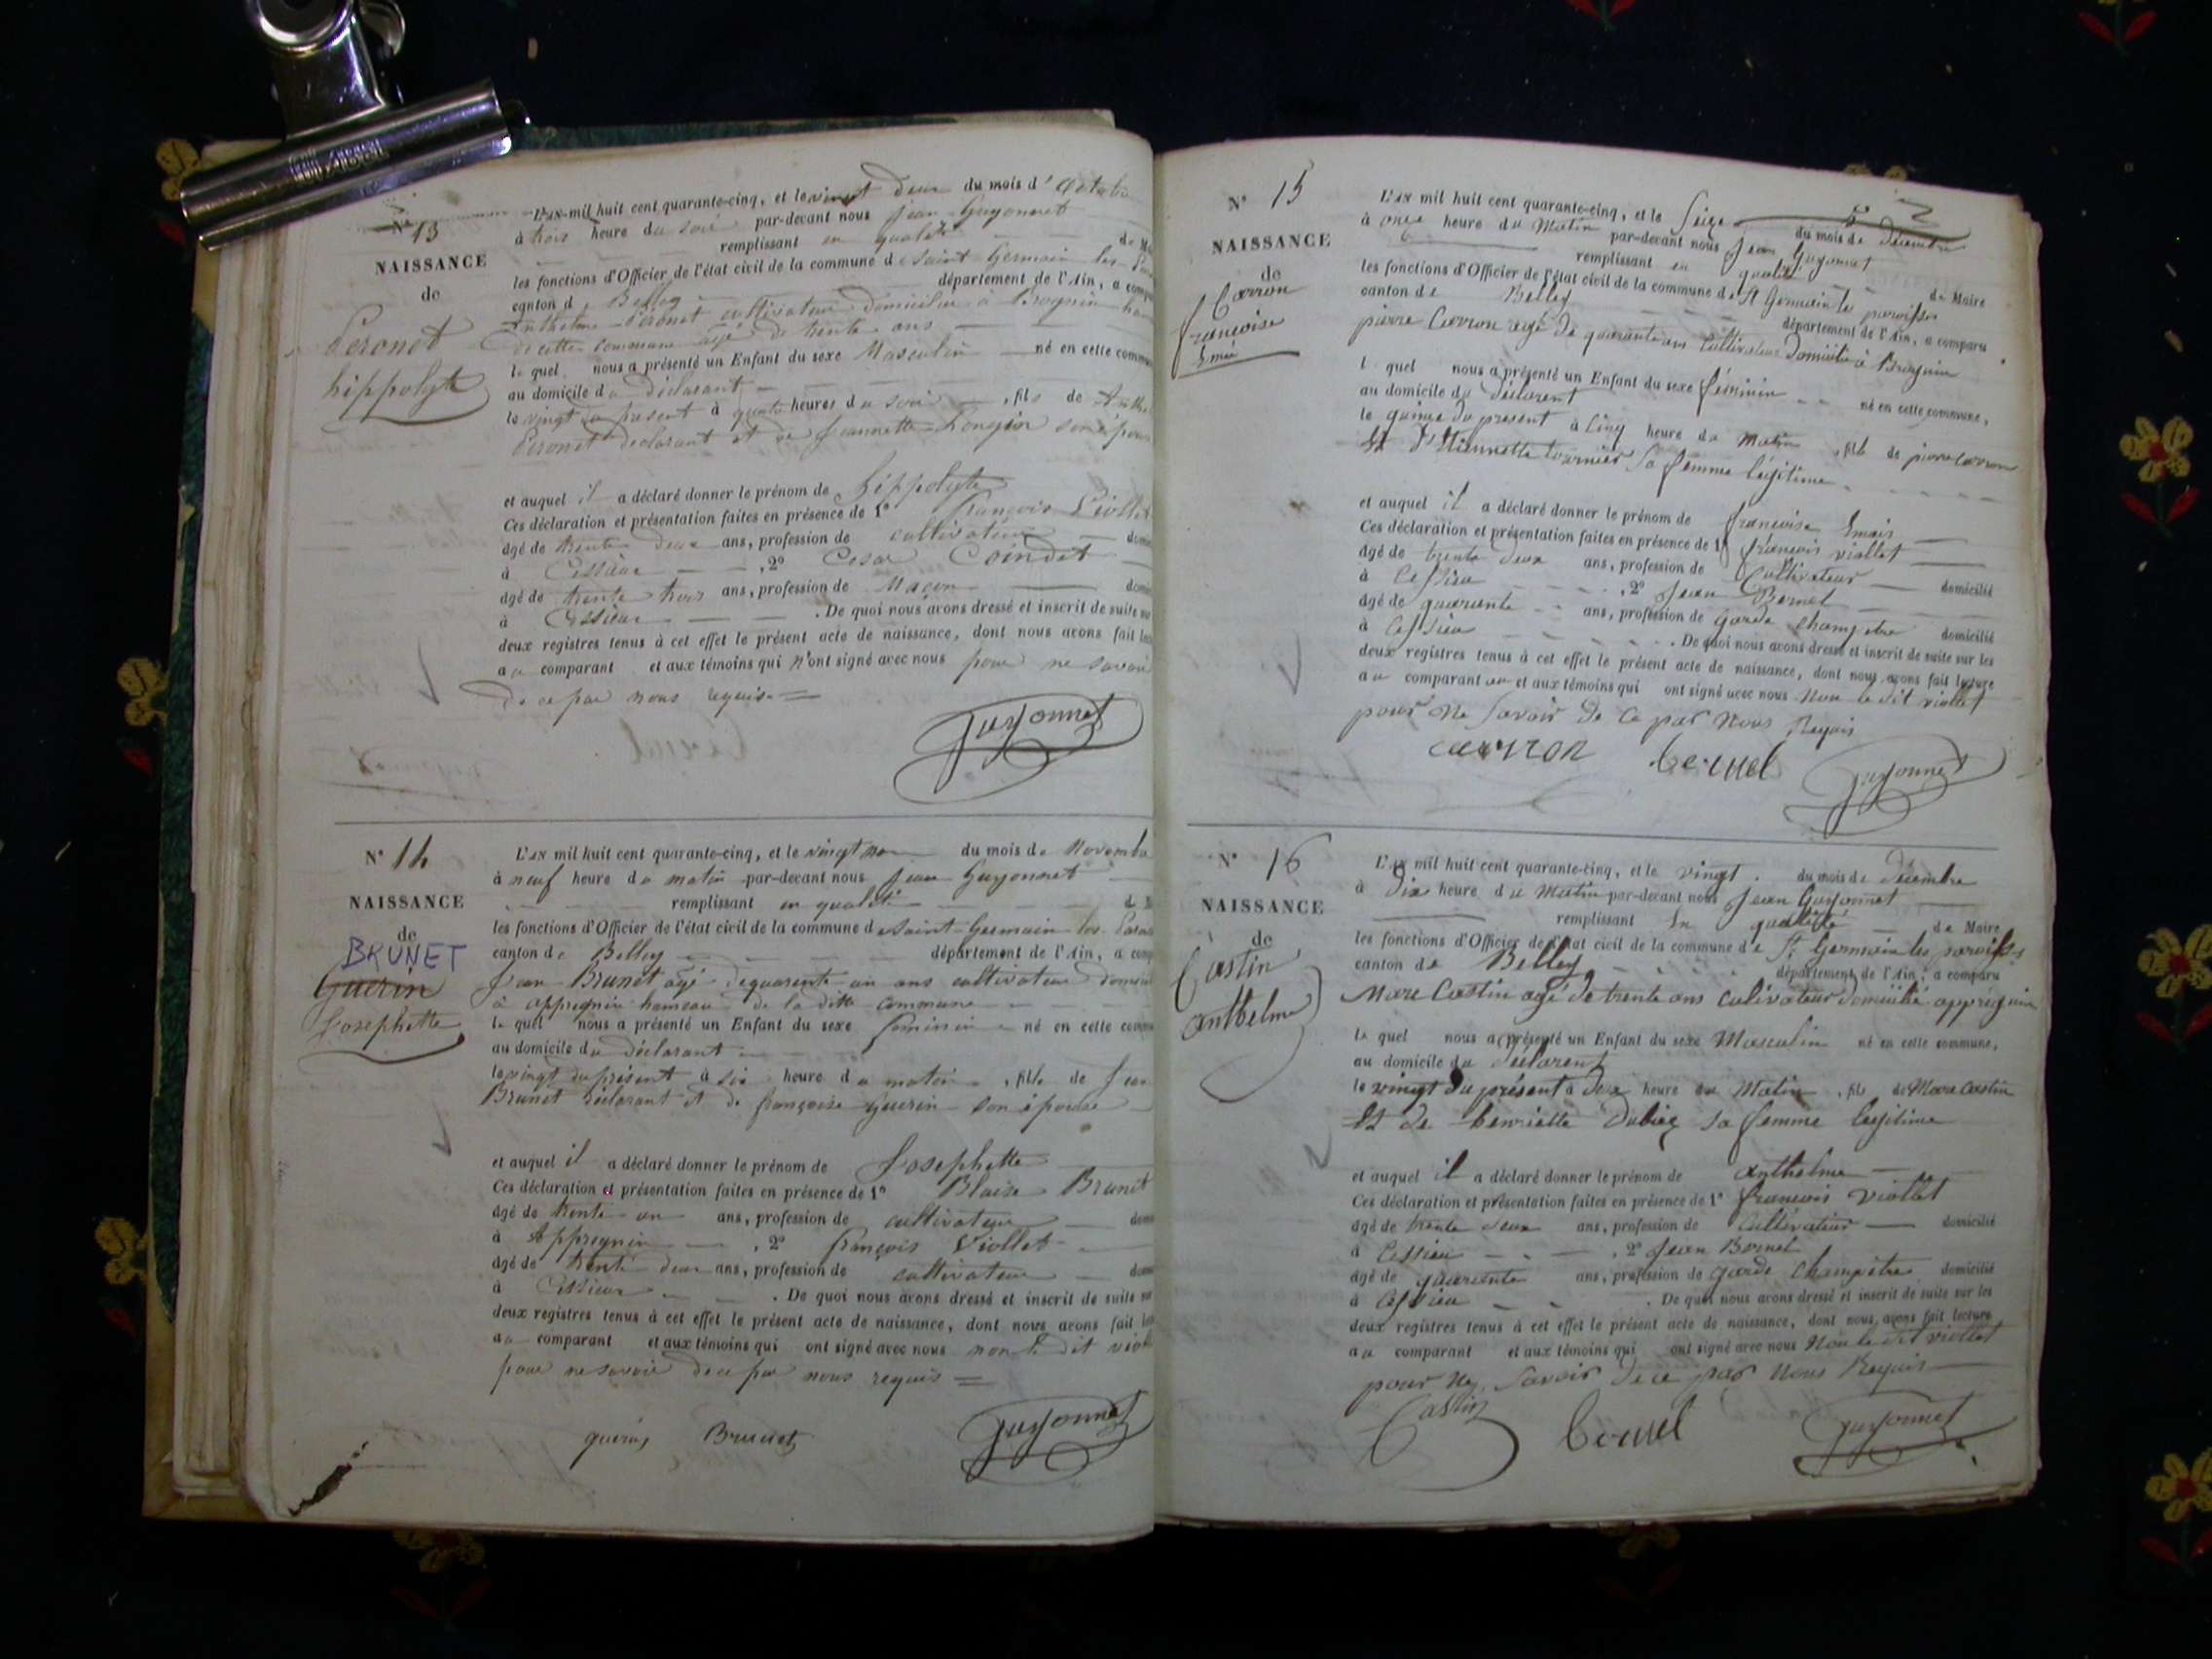 N° 13
NAISSANCE
de
Peronet
hippolyte
L'AN mil huit cent quarante-cinq, et le vingt deux du mois d'Octobre
à trois heure du soir par-devant nous Jean Guyonnet
remplissant en qualité de M
les fonctions d'Officier de l'état civil de la commune de Saint Germain les Par
canton de Belley département de l'Ain, a comp
Anthelme Péronet cultivateur domicilié à Brognin ha
de cette commune agé de trente ans
le quel nous a présenté un Enfant du sexe Masculin né en cette commu
au domicile du déclarant
le vingt du present à quatre heures du soir, fils de Anthe
Péronet déclarant et de Jeannette Longin son épou
et auquel il a déclaré donner le prénom de hippolyte
Ces déclaration et présentation faites en présence de 1° François Viollet
âgé de trente deux ans, profession de cultivateur domi
à Cessieur, 2° César Coindet
âgé de trente trois ans, profession de Maçon domi
à Cessieur. De quoi nous avons dressé et inscrit de suite su
deux registres tenus à cet effet le présent acte de naissance, dont nous avons fait lec
au comparant et aux témoins qui n'ont signé avec nous pour ne savoir
de ce par nous requis
Guyonnet
N° 14
NAISSANCE
de
BRUNET
Guerin
Josephette
L'AN mil huit cent quarante-cinq, et le vingt du mois de Novembre
à neuf heure du matin par-devant nous Jean Guyonnet
remplissant en qualité d M
les fonctions d'Officier de l'état civil de la commune de Saint-Germain les Paroi
canton de Belley département de l'Ain, a comp
Jean Brunet agé de quarante un ans cultivateur domicil
à appregnin hameau de la ditte commune
le quel nous a présenté un Enfant du sexe feminin né en cette comm
au domicile du déclarant
le vingt du présent à six heure du matin, fille de Jean
Brunet déclarant et de françoise Guerin son épouse
et auquel il a déclaré donner le prénom de Josephette
Ces déclaration et présentation faites en présence de 1° Blaise Brunet
âgé de trente un ans, profession de cultivateur domi
à Appregnin, 2° françois Viollet
âgé de trente deux ans, profession de cultivateur domi
à Cessieur. De quoi nous avons dressé et inscrit de suite su
deux registres tenus à cet effet le présent acte de naissance, dont nous avons fait lec
au comparant et aux témoins qui ont signé avec nous non le dit viollet
pour ne savoir de ce par nous requis
guerin Brunet Guyonnet
N° 15
NAISSANCE
de
Carron
françoise
L'AN mil huit cent quarante-cinq, et le Seize du mois de décembre
à onze heure du Matin par-devant nous Jean Guyonnet
remplissant en qualité de Maire
les fonctions d'Officier de l'état civil de la commune de St Germain les paroisses
canton de Belley département de l'Ain, a comparu
pierre Carron agé de quarante ans Cultivateur domicilié à Brognin
l quel nous a présenté un Enfant du sexe féminin né en cette commune,
au domicile du déclarent
le quinze du présent à Cinq heure du matin, fille de pierre carron
Et d'Etiennette tournier Sa femme légitime
et auquel il a déclaré donner le prénom de françoise
Ces déclaration et présentation faites en présence de 1° françois viollet
âgé de trente deux ans, profession de Cultivateur domicilié
à Cessieu, 2° Jean Bornet
âgé de quarente ans, profession de garde Champetre domicilié
à Cessieu. De quoi nous avons dressé et inscrit de suite sur les
deux registres tenus à cet effet le présent acte de naissance, dont nous avons fait lecture
au comparant et aux témoins qui ont signé avec nous Non le dit viollet
pour Ne Savoir de Ce par Nous Requis
carron bornel Guyonnet
N° 16
NAISSANCE
de
Castin
anthelme
L'AN mil huit cent quarante-cinq, et le vingt du mois de décembre
à Dix heure du Matin par-devant nous Jean Guyonnet
remplissant En qualité de Maire
les fonctions d'Officier de l'état civil de la commune de St Germain les paroisses
canton de Belley département de l'Ain, a comparu
Marc Castin agé de trente ans Culivateur domicilié appregnin
le quel nous a présenté un Enfant du sexe Masculin né en cette commune,
au domicile du déclarent
le vingt du présent à deux heure du Matin, fils de Marc Castin
Et de henriette Dubiez Sa femme légitime
et auquel il a déclaré donner le prénom de anthelme
Ces déclaration et présentation faites en présence de 1° françois viollet
âgé de trente deux ans, profession de Cultivateur domicilié
à Cessieu, 2° Jean Bornet
âgé de quarente ans, profession de garde Champetre domicilié
à Cessieu. De quoi nous avons dressé et inscrit de suite sur les
deux registres tenus à cet effet le présent acte de naissance, dont nous avons fait lecture
au comparant et aux témoins qui ont signé avec nous Non le dit viollet
pour Ne Savoir de Ce par Nous Requis
Castin bornel Guyonnet